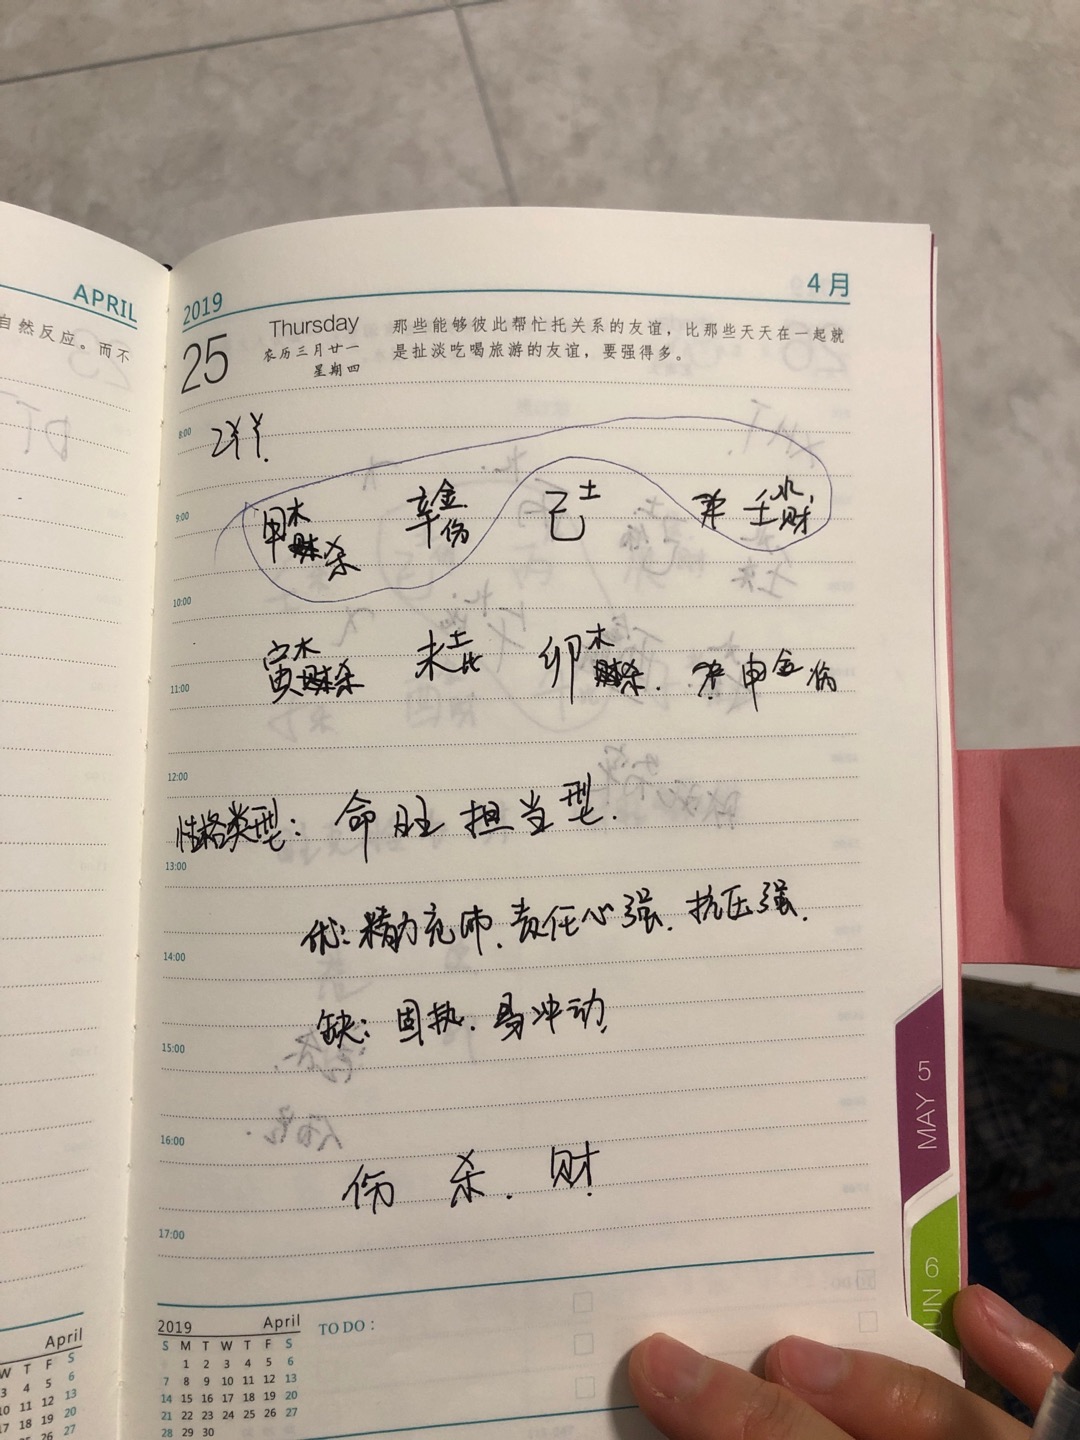 APRIL
自然反应。而不
2019
4月
25
Thursday
农历三月廿一
星期四
那些能够彼此帮忙托关系的友谊，比那些天天在一起就
是扯淡吃喝旅游的友谊，要强得多。
8:00
9:00
甲木杀 辛金伤 己土 壬水财
10:00
寅木杀 未土比 卯木杀. 申金伤
11:00
12:00
性格类型: 命旺担当型.
13:00
优: 精力充沛、责任心强、抗压强.
14:00
缺: 固执. 易冲动.
15:00
16:00
伤 杀. 财.
17:00
2019 April
S M T W T F S
1 2 3 4 5 6
7 8 9 10 11 12 13
14 15 16 17 18 19 20
21 22 23 24 25 26 27
28 29 30
TO DO :
April
W T F S
3 4 5 6
10 11 12 13
17 18 19 20
26 27
5
MAY
6
JUN